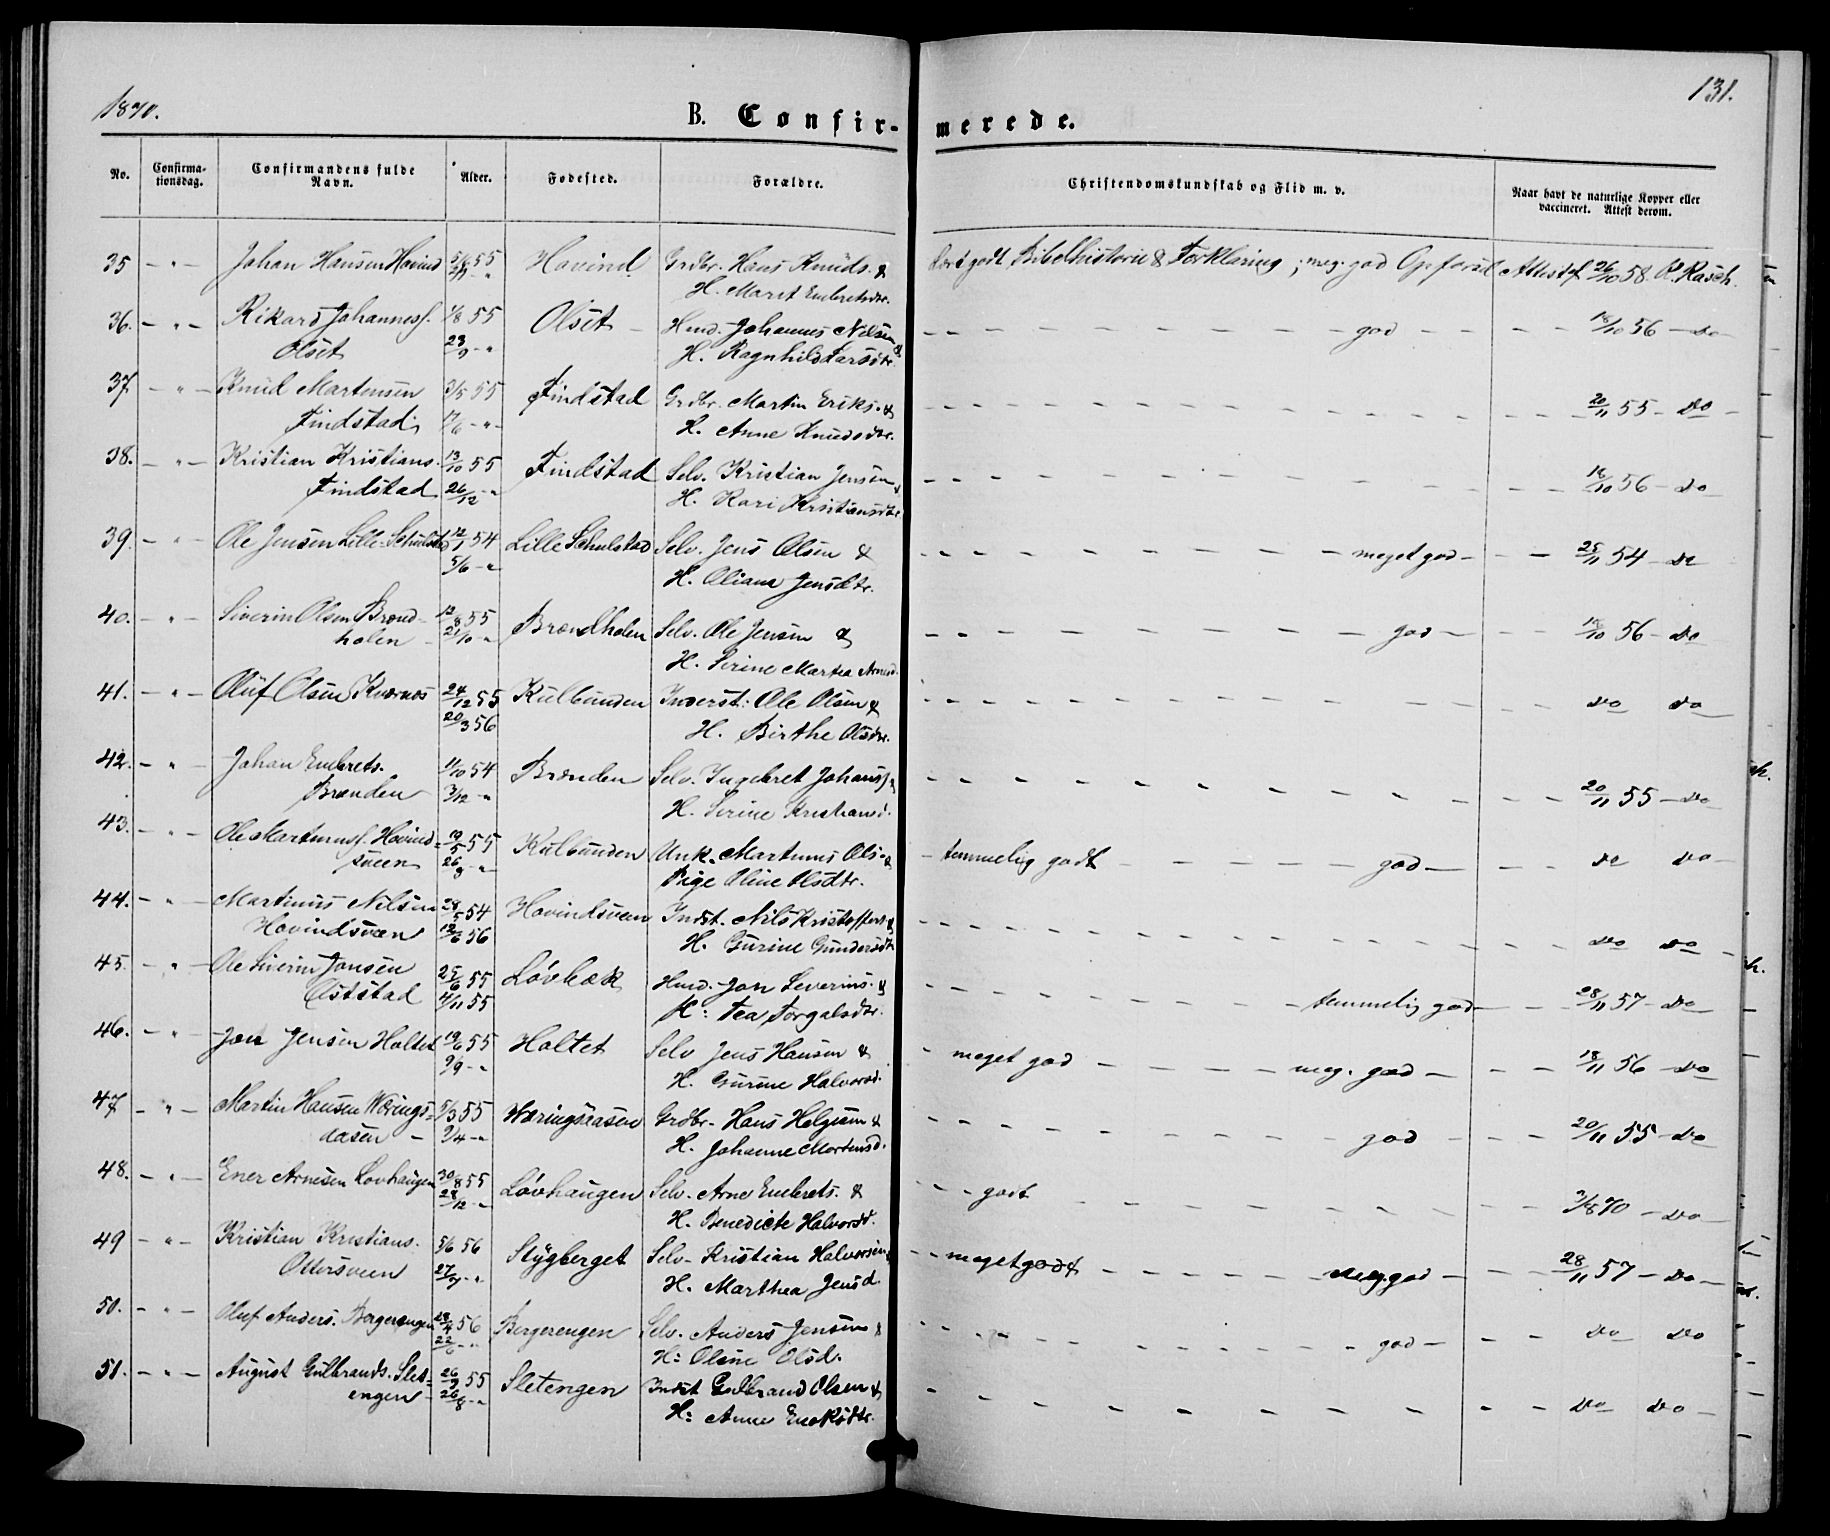 1870.
131.
B. Confir- merede.
No.
Confirma-
tionsdag.
Confirmandens fulde
Navn.
Alder.
Fødested.
Forældre.
Christendomskundskab og Flid m. v.
Naar havt de naturlige Kopper eller
vaccineret. Attest derom.
35 - " - Johan Hansen Hovind 5/6 55 Hovind Grdbr. Hans Knuds. &
H. Marit Embretsdtr.
godt Bibelhistorie & Forklaring; meg. god Opførsel Attest af 26/10 58. P. Rasch.
36. - " - Rikard Johannesf. 1/8 55 Olset - Hmd. Johannes Nilsen &
Olset 23/9 - " H. Ragnhild Larsdtr.
- god - 18/10 56 - Do
37 - " - Knud Martensen 3/5 55 Findstad Grdbr. Martin Eriks. &
Findstad 17/6 - " - H. Anne Knudsdtr.
20/11 55 - Do -
38. - " - Kristian Kristians. 13/10 55 Findstad Selv. Kristian Jensen &
Findstad 26/12 - " H. Kari Kristiansdtr.
18/10 56 - Do
39. - " - Ole Jensen Lille-Schulstad 12/1 54 Lille Schulstad Selv. Jens Olsen &
5/6 - " H. Oliana Jensdtr.
- meget god - 25/11 54 - Do
40. - " - Siverin Olsen Brænd- 12/8 55 Brændholen Selv. Ole Jensen &
holen - 21/10 - " H. Serine Martea Arnesd.
- god - 18/10 56 - Do
41. - " - Oluf Olsen Kværnøs 24/12 55 Kulbunden Inderst: Ole Olsen &
20/3 56 H. Birthe Olsdtr.
Do Do
42. - " - Johan Embrets. 11/10 54 Brænden Selv. Ingebret Johansf. &
Brænden 3/12 - " H. Serine Kristiansd.
20/11 55 - Do
43. - " - Ole Martinusf. Hovind= 19/5 55 Kulbunden Unk. Martinus Ols. &
sveen 26/9 - " Pige Oline Olsdtr.
- temmelig godt - god - Do Do -
44. - " - Martinus Nilsen 28/5 54 Hovindsveen Indst. Nils Kristoffers. &
Hovindsveen 12/6 56 H. Gurine Gundersdtr.
Do Do -
45. - " - Ole Siverin Jonsen 25/6 55 Løvbæk Hmd. Jon Severins. &
Olstad 4/11 55 H: Tea Torgalsdtr.
- temmelig god - 28/11 57 - Do
46. - " Jon Jensen Holtet 19/6 55 Holtet Selv Jens Hansen &
9/9 - " H. Gurine Halvorsd.
- meget god - meg. god - 18/11 56 - Do
47 - " - Martin Hansen Wærings= 5/3 55 Wæringsaasen Grdbr. Hans Helgesen &
aasen - 9/4 - " H. Johanne Mortensd.
god - 20/11 55 - Do
48. - " - Ener Arnesen Løvhaugen 30/8 55 Løvhaugen Selv. Arne Embrets. &
28/12 - " H. Benedicte Halvorsd.
- godt - 70 - Do
49 - " - Kristian Kristians. 5/6 56 Stygberget Selv. Kristian Halvorsen &
Ottersveen 27/7 - " H. Marthea Jensd.
- meget godt - meg. god - 28/11 57 - Do -
50. - " - Oluf Anders. Borgerengen 28/4 56 Borgerengen Selv. Anders Jensen &
22/6 - " H: Oline Olsd.
- god - Do Do
51. - " - August Gulbrands. Slet- 26/3 55 Sletengen Indst Gulbrand Olsen &
engen - 26/8 - " H: Anne Ericksdtr.
Do Do -